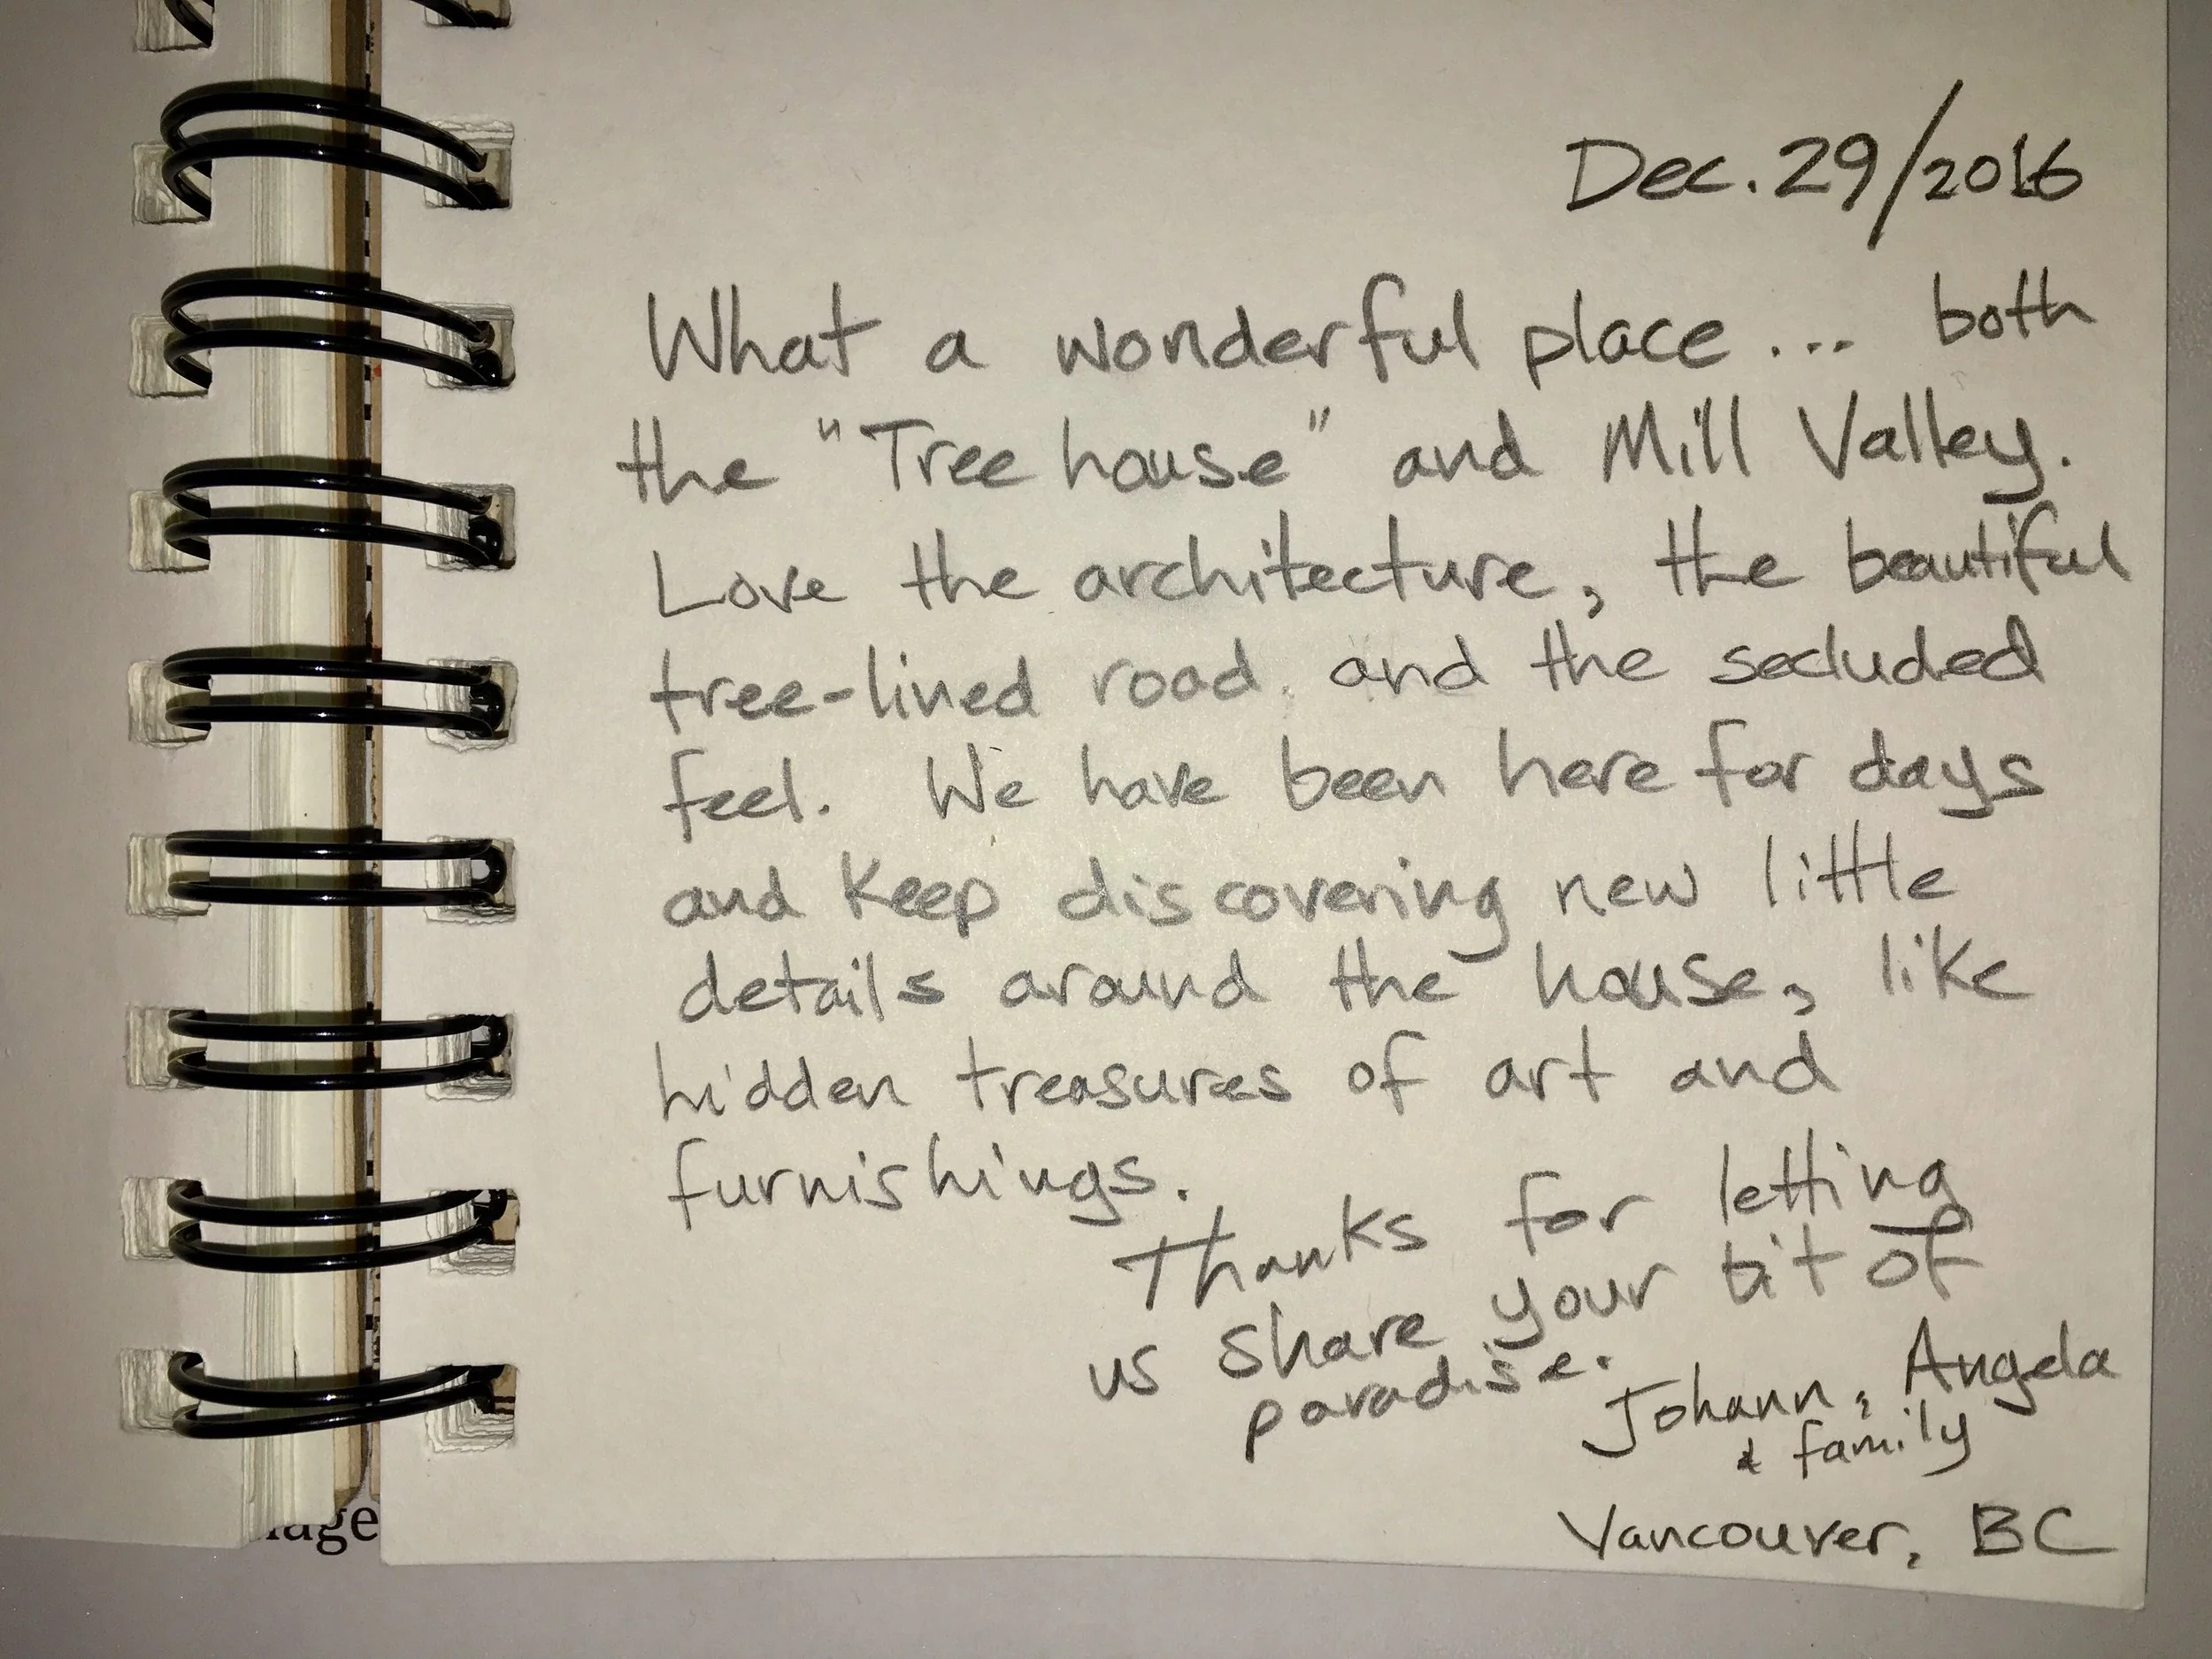 Dec. 29/2016
What a wonderful place... both
the "Tree house" and Mill Valley.
Love the architecture, the beautiful
tree-lined road, and the secluded
feel. We have been here for days
and keep discovering new little
details around the house, like
hidden treasures of art and
furnishings.
Thanks for letting
us share your bit of
paradise.
Johann, Angela
& family
Vancouver, BC